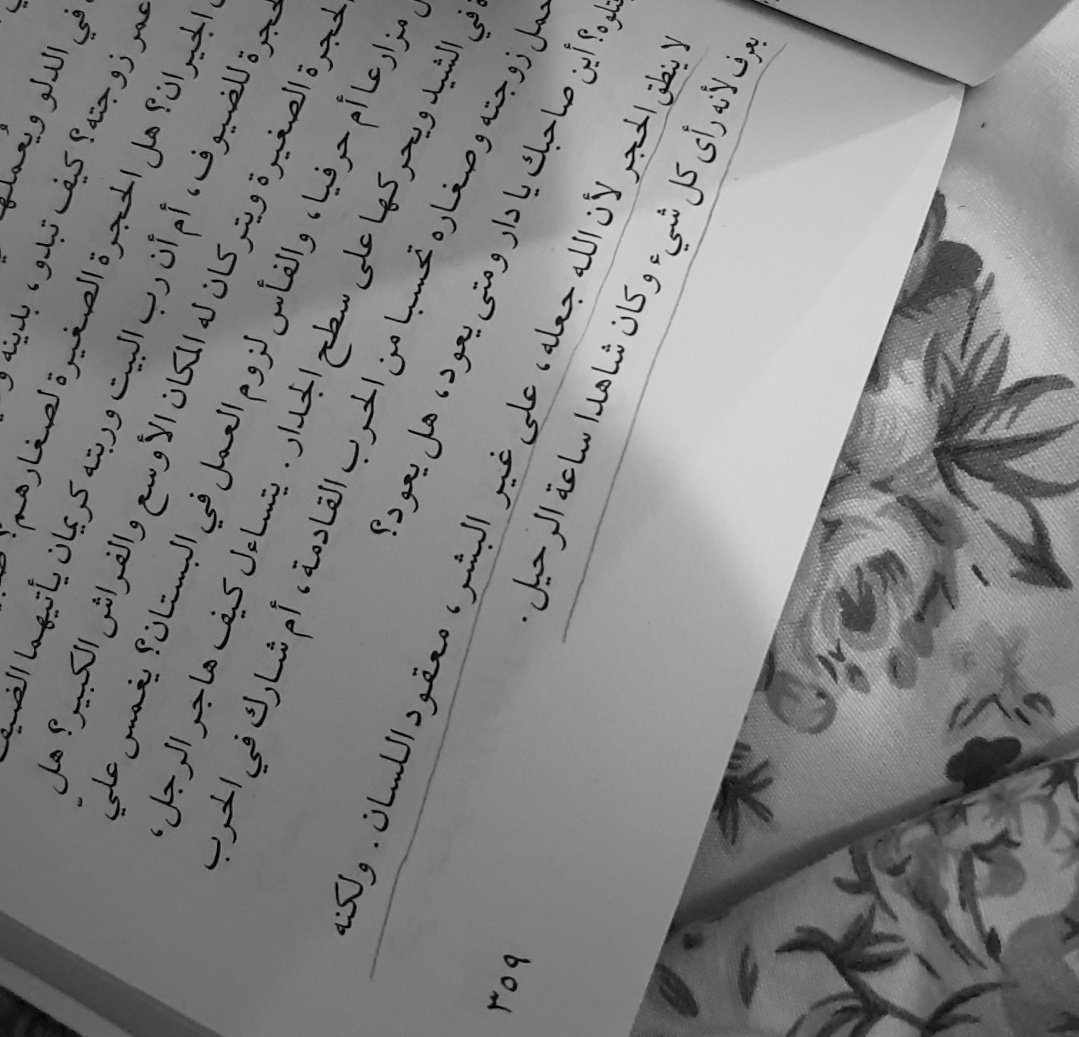 في الدلو ويُعملها
عمر زوجته؟ كيف تبدو، بدينة
الجيران؟ هل الحجرة الصغيرة لصغارهم؟
للضيوف، أم أن رب البيت وربته كريمان يأتيهما الضيف
الحجرة الصغيرة ويتركان له المكان الأوسع والفراش الكبير؟ هل
مزارعا أم حرفيا، والفأس لزوم العمل في البستان؟ يغمس علي
في الشيد ويحركها على سطح الجدار. يتساءل كيف هاجر الرجل،
حمل زوجته وصغاره تحسبا من الحرب القادمة، أم شارك في الحرب
أين صاحبك يا دار ومتى يعود، هل يعود؟
لا ينطق الحجر لأن الله جعله، على غير البشر، معقود اللسان. ولكنه
يعرف لأنه رأى كل شيء وكان شاهدا ساعة الرحيل.
٣٥٩